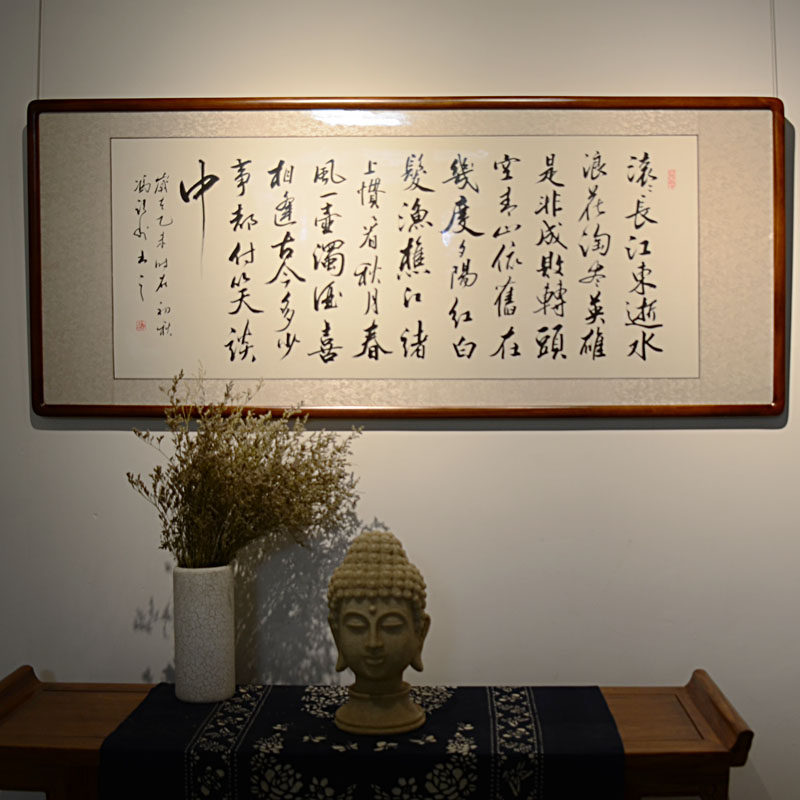 滚々長江東逝水
浪花淘尽英雄
是非成敗轉頭
空青山依舊在
幾度夕陽紅白
髮漁樵江渚
上慣看秋月春
風一壺濁酒喜
相逢古今多少
事都付笑談
中
歲在乙未時在初秋